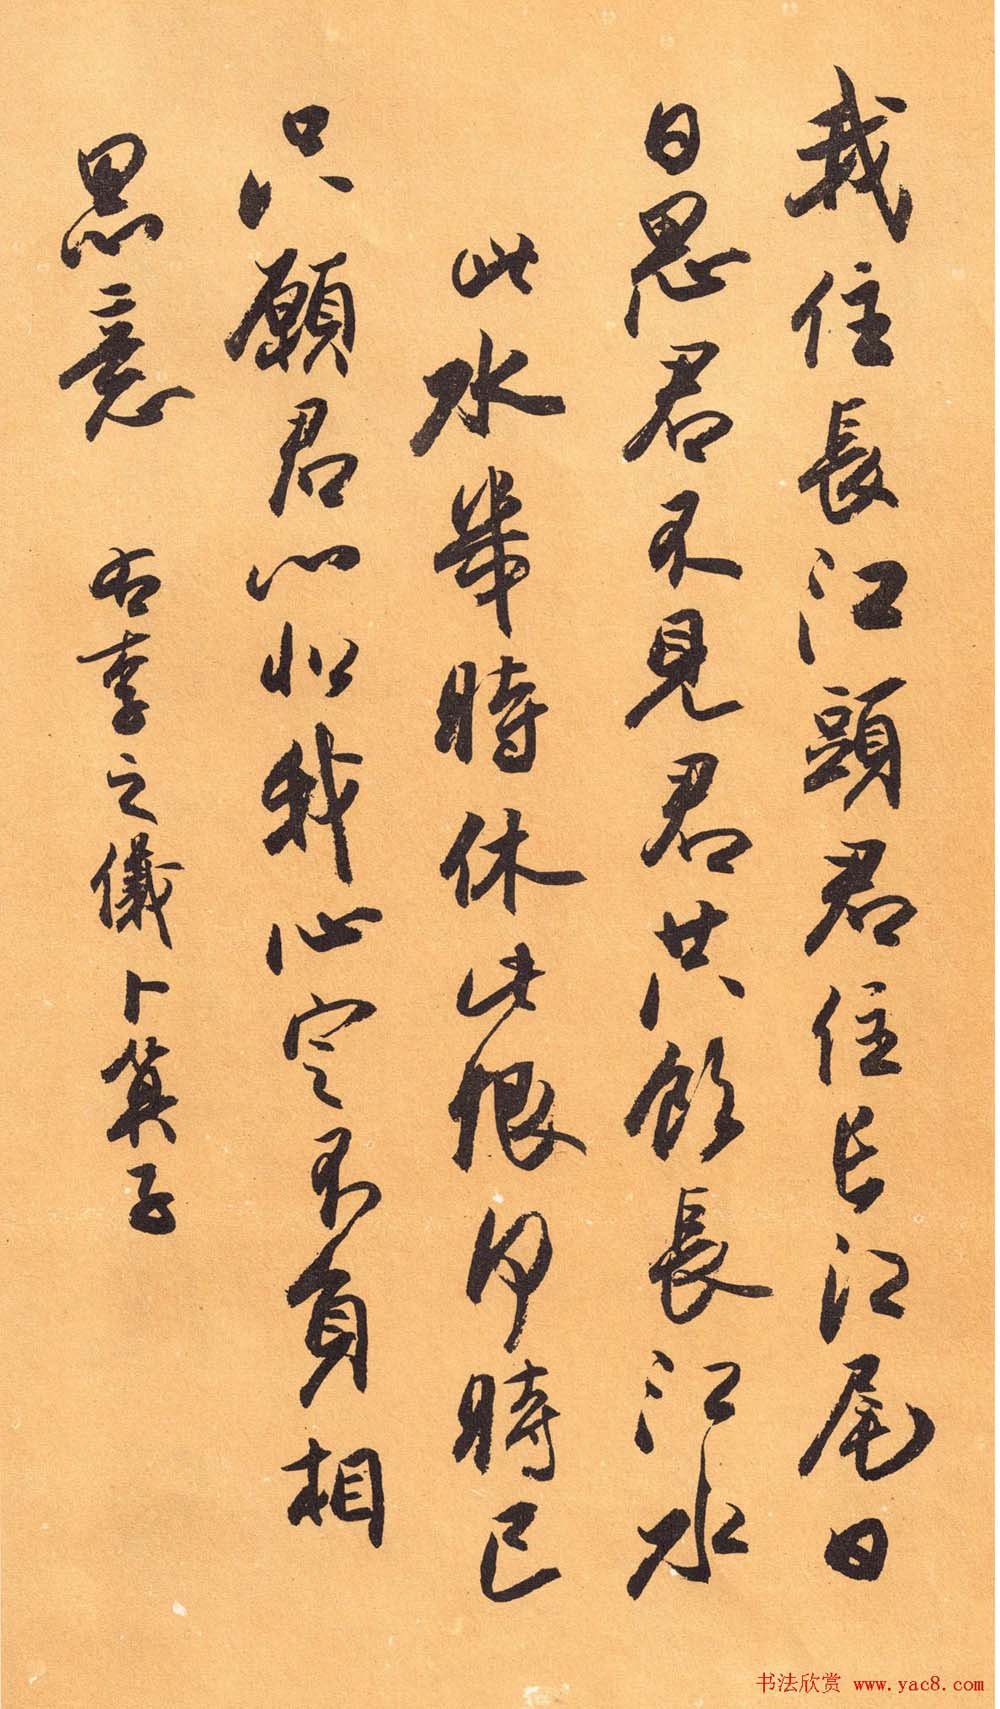 我住長江頭君住長江尾日
日思君不見君共飲長江水
此水幾時休此恨何時已
只願君心似我心定不負相
思意
右李之儀卜算子
书法欣赏 www.yac8.com